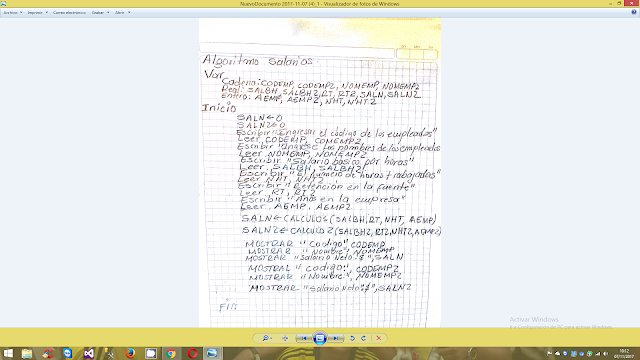 NuevoDocumento 2017-11-07 (4)_1 - Visualizador de fotos de Windows
Archivo Imprimir Correo electrónico Grabar Abrir
Algoritmo Salarios
Var
Cadena: CODEMP, CODEMP2, NOMEMP, NOMEMP2
Real: SALBH, SALBH2, RT, RT2, SALN, SALN2
Entero: AEMP, AEMP2, NHT, NHT2
Inicio
SALN←0
SALN2←0
Escribir "Ingresar el código de los empleados"
Leer CODEMP, COMEMP2
Escribir "Ingrese los nombres de los empleados
Leer NOMEMP, NOMEMP2
Escribir "Salario básico por horas"
Leer SALBH, SALBH2
Escribir "El número de horas trabajadas"
Leer NHT, NHT2
Escribir "Retención en la fuente"
Leer RT, RT2
Escribir "Años en la empresa"
Leer AEMP, AEMP2
SALN←CALCULOS(SALBH,RT,NHT,AEMP)
SALN2←CALCULO2(SALBH2,RT2,NHT2,AEMP2)
MOSTRAR "Codigo", CODEMP
MOSTRAR "Nombre", NOMEMP
MOSTRAR "Salario Neto:$", SALN
MOSTRAL "Codigo:", CODEMP2
MOSTRAR "Nombre:", NOMEMP2
MOSTRAR "Salario Neto:$", SALN2
Fin
Activar Windows
10:12
07/11/2017